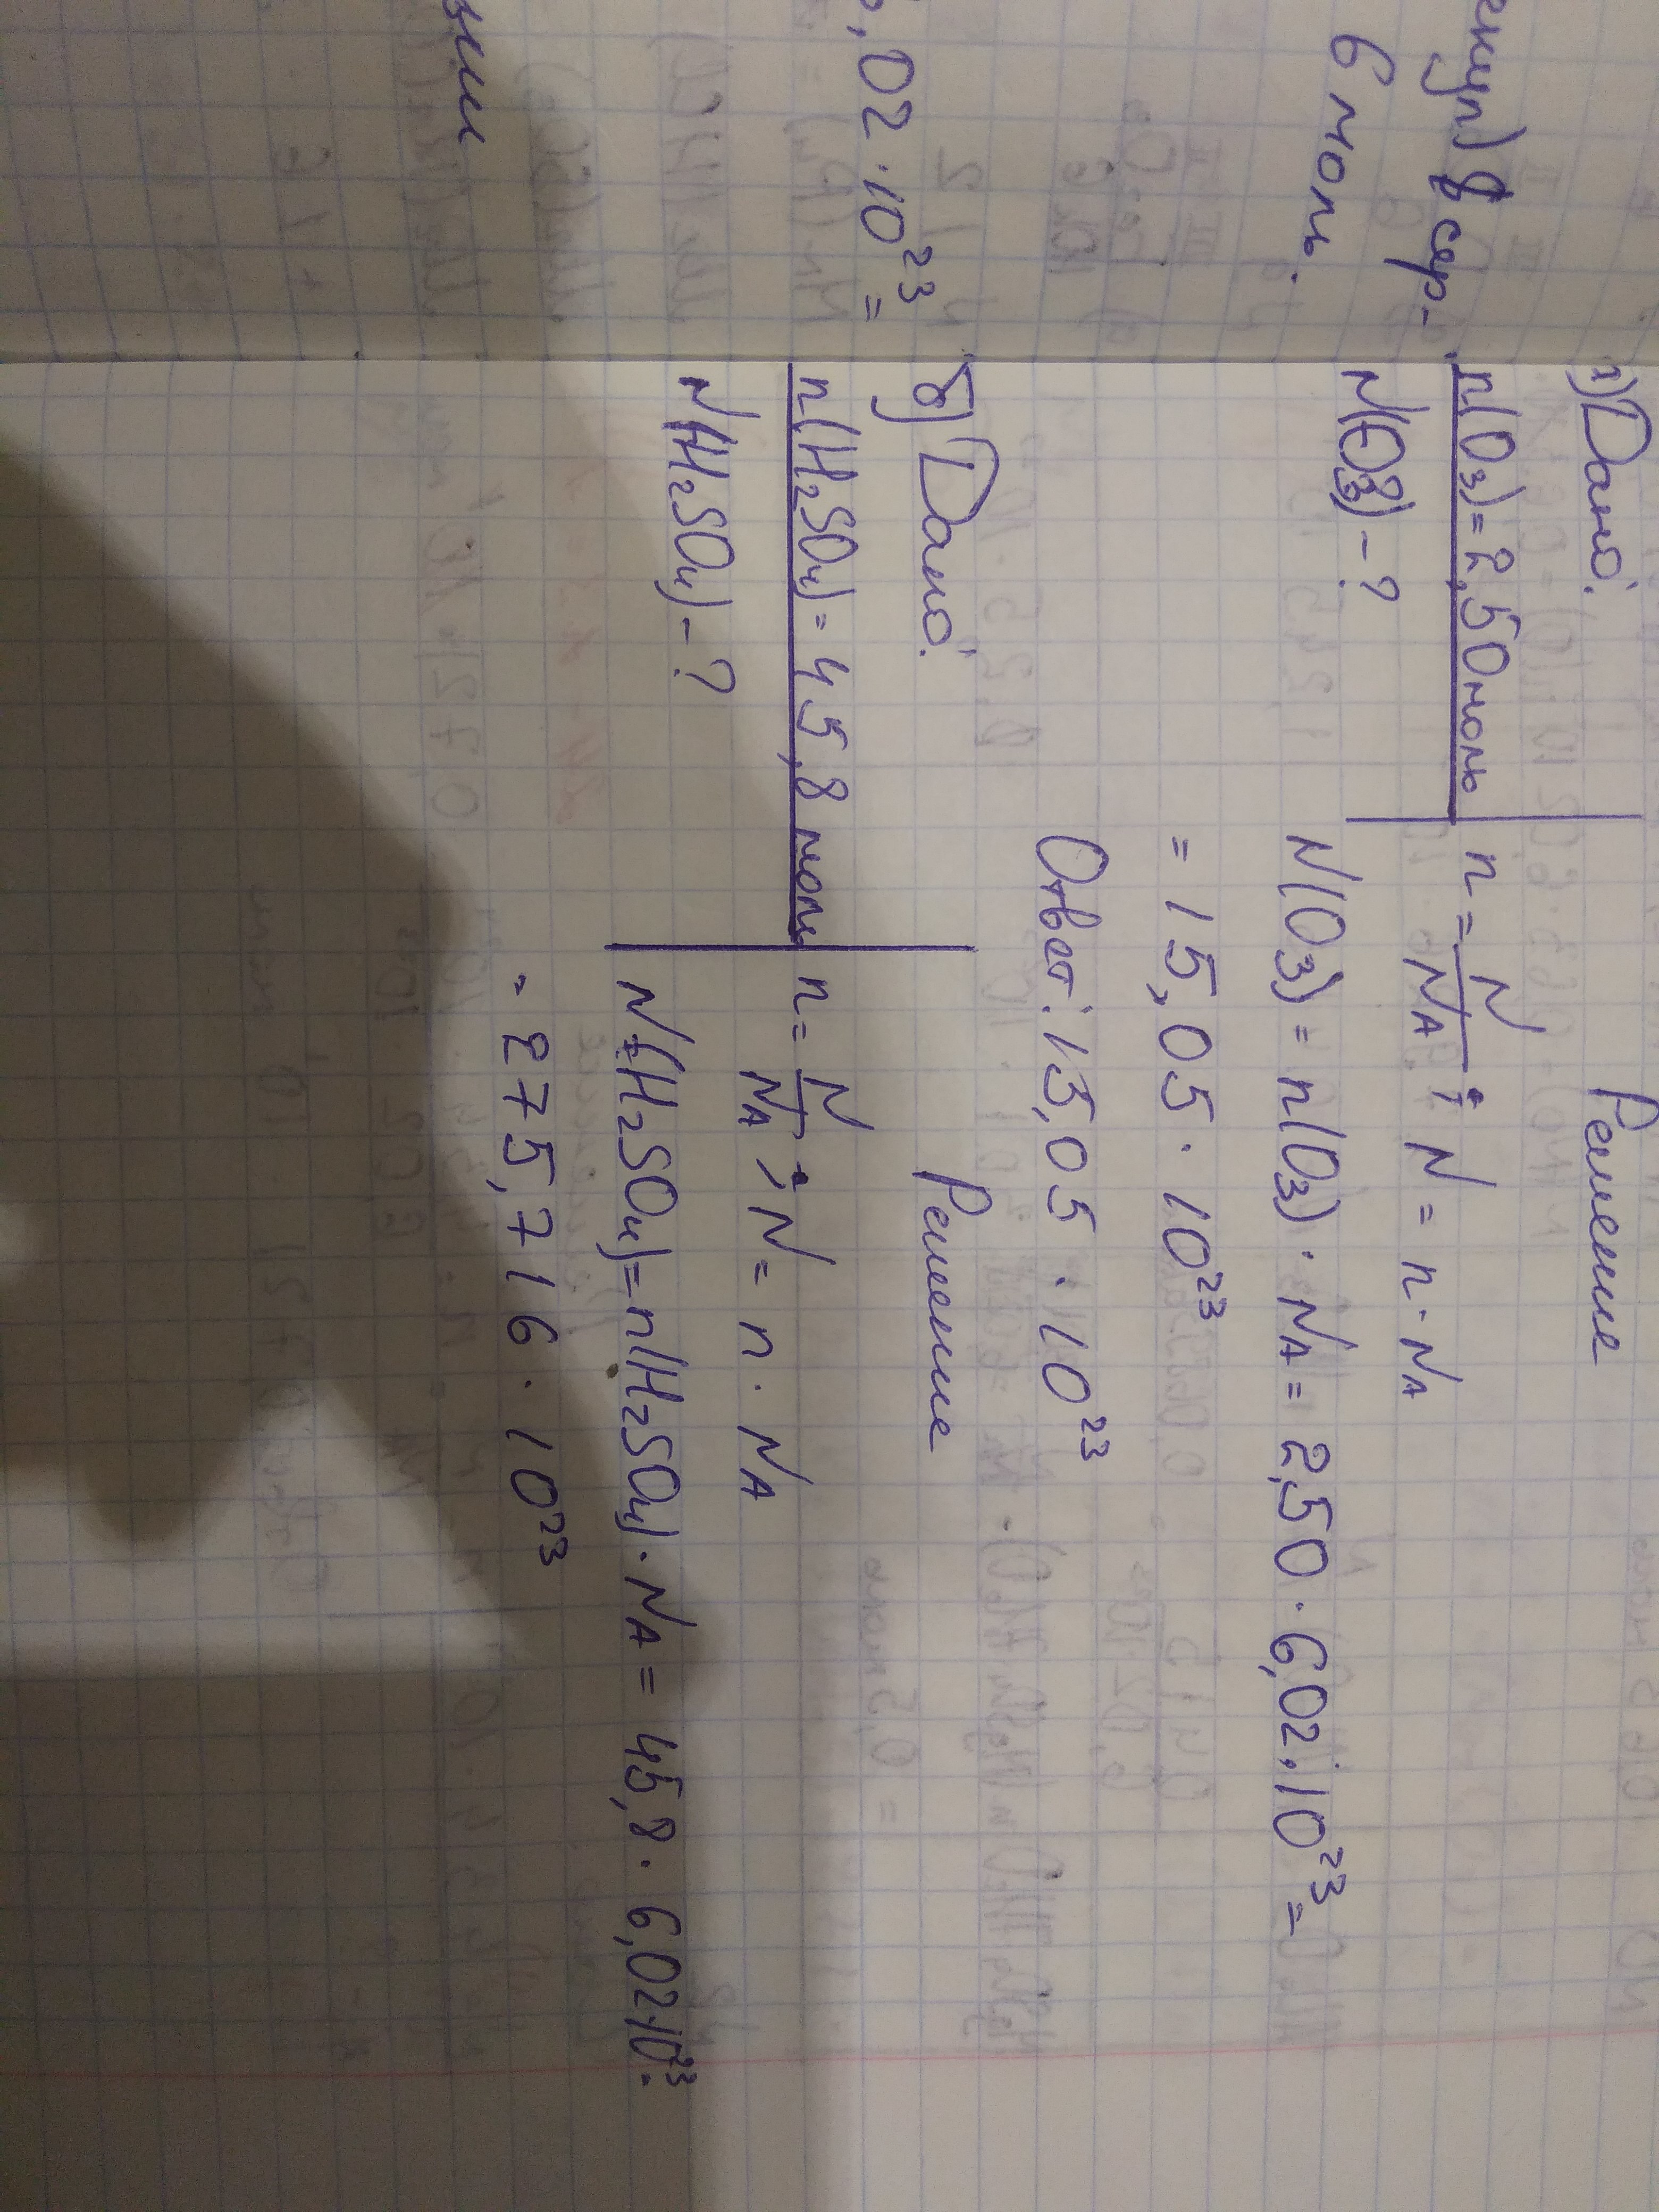 екул) в сер-
6 моль.
,02 · 10²³ =
зии
а) Дано:
n(O₃) = 2,50 моль
N(O₃) - ?
Решение
n = N/Nₐ ; N = n · Nₐ
N(O₃) = n(O₃) · Nₐ = 2,50 · 6,02 · 10²³ =
= 15,05 · 10²³
Ответ: 15,05 · 10²³
б) Дано:
n(H₂SO₄) = 45,8 моль
N(H₂SO₄) - ?
Решение
n = N/Nₐ ; N = n · Nₐ
N(H₂SO₄) = n(H₂SO₄) · Nₐ = 45,8 · 6,02 · 10²³ =
= 275,716 · 10²³